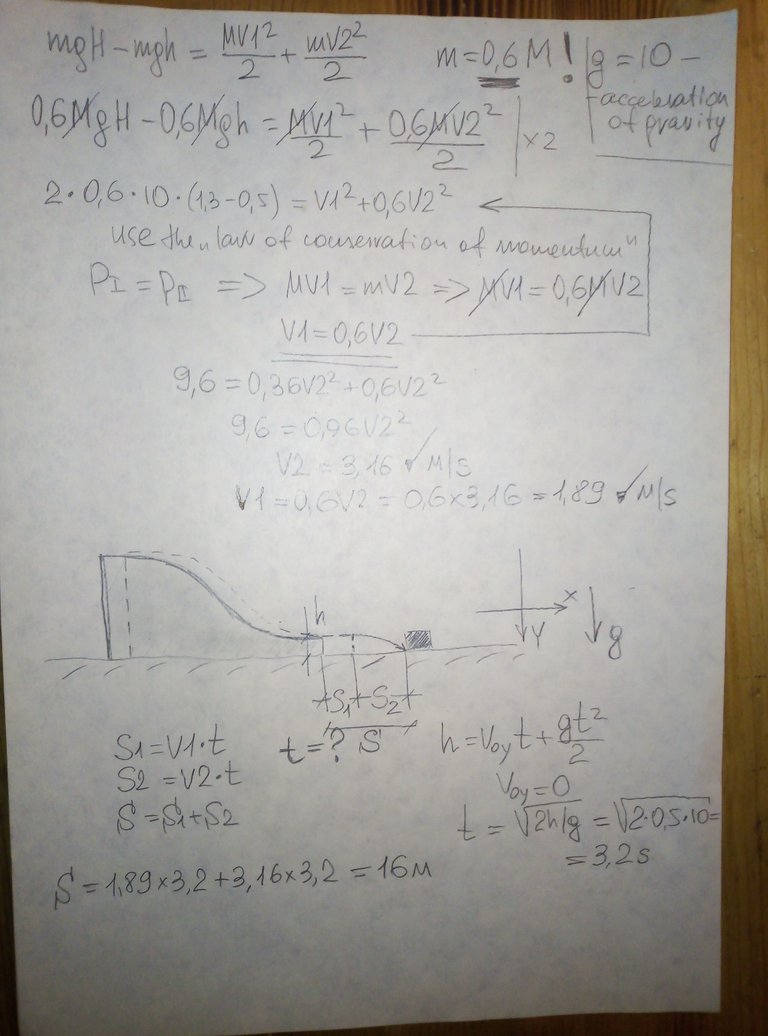 mgH – mgh = MV1²/2 + mV2²/2 m = 0,6 M! g = 10 – acceleration of gravity
0,6MgH – 0,6Mgh = MV1²/2 + 0,6MV2²/2 | ×2
2·0,6·10·(1,3–0,5) = V1² + 0,6V2²
use the „law of conservation of momentum"
PI = PII => MV1 = mV2 => MV1 = 0,6MV2
V1 = 0,6V2
9,6 = 0,36V2² + 0,6V2²
9,6 = 0,96V2²
V2 = 3,16 ✓ M/s
V1 = 0,6V2 = 0,6×3,16 = 1,89 ✓ M/s
h
X
Y
g
S1 S2
S
S1 = V1·t t = ? h = Voy t + gt²/2
S2 = V2·t Voy = 0
S = S1 + S2 t = √2h/g = √2·0,5·10 =
= 3,2 s
S = 1,89×3,2 + 3,16×3,2 = 16 м